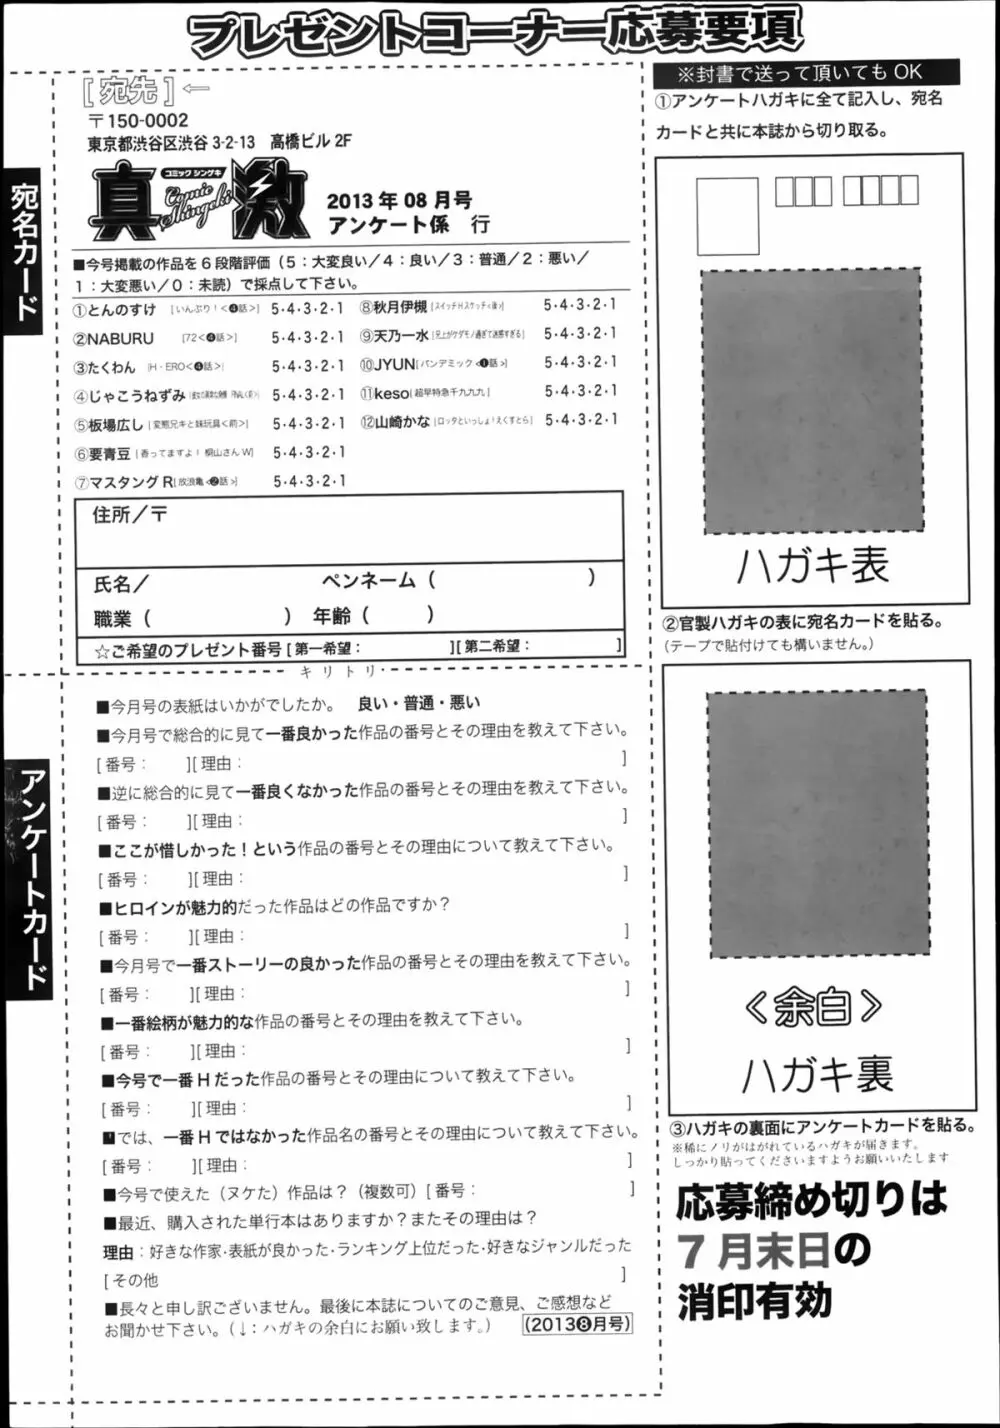 プレゼントコーナー応募要項
[宛先]←
〒150-0002
東京都渋谷区渋谷 3-2-13　高橋ビル 2F
コミック シンゲキ
真激
Comic Shingeki
2013 年 08 月号
アンケート係　行
宛名カード
■今号掲載の作品を 6 段階評価（5：大変良い／4：良い／3：普通／2：悪い／
1：大変悪い／0：未読）で採点して下さい。
①とんのすけ [いんぷり！<❹話>] 5・4・3・2・1
②NABURU [72<❹話>] 5・4・3・2・1
③たくわん [H・ERO<❹話>] 5・4・3・2・1
④じゃこうねずみ 5・4・3・2・1
⑤板場広し [変態兄キと妹玩具<前>] 5・4・3・2・1
⑥要青豆 [香ってますよ！桐山さんW] 5・4・3・2・1
⑦マスタング R [放浪亀<❷話>] 5・4・3・2・1
⑧秋月伊槻 [スイッチHスケッチ<後>] 5・4・3・2・1
⑨天乃一水 [兄上がケダモノ過ぎて迷惑すぎる] 5・4・3・2・1
⑩JYUN [パンデミック<❶話>] 5・4・3・2・1
⑪keso [超早特急千九九九] 5・4・3・2・1
⑫山崎かな [ロッタといっしょ！えくすとら] 5・4・3・2・1
住所／〒
氏名／　ペンネーム（　）
職業（　）　年齢（　）
☆ご希望のプレゼント番号 [第一希望：　][第二希望：　]
キリトリ
アンケートカード
■今月号の表紙はいかがでしたか。　良い・普通・悪い
■今月号で総合的に見て一番良かった作品の番号とその理由を教えて下さい。
[番号：　][理由：　]
■逆に総合的に見て一番良くなかった作品の番号とその理由を教えて下さい。
[番号：　][理由：　]
■ここが惜しかった！という作品の番号とその理由について教えて下さい。
[番号：　][理由：　]
■ヒロインが魅力的だった作品はどの作品ですか？
[番号：　][理由：　]
■今月号で一番ストーリーの良かった作品の番号とその理由を教えて下さい。
[番号：　][理由：　]
■一番絵柄が魅力的な作品の番号とその理由を教えて下さい。
[番号：　][理由：　]
■今号で一番 H だった作品の番号とその理由について教えて下さい。
[番号：　][理由：　]
■では、一番 H ではなかった作品名の番号とその理由について教えて下さい。
[番号：　][理由：　]
■今号で使えた（ヌケた）作品は？（複数可）[番号：　]
■最近、購入された単行本はありますか？またその理由は？
理由：好きな作家・表紙が良かった・ランキング上位だった・好きなジャンルだった
[その他　]
■長々と申し訳ございません。最後に本誌についてのご意見、ご感想など
お聞かせ下さい。（↓：ハガキの余白にお願い致します。）
（2013❽月号）
※封書で送って頂いても OK
①アンケートハガキに全て記入し、宛名
カードと共に本誌から切り取る。
ハガキ表
②官製ハガキの表に宛名カードを貼る。
（テープで貼付けても構いません。）
＜余白＞
ハガキ裏
③ハガキの裏面にアンケートカードを貼る。
※稀にノリがはがれているハガキが届きます。
しっかり貼ってくださいますようお願いいたします
応募締め切りは
7 月末日の
消印有効